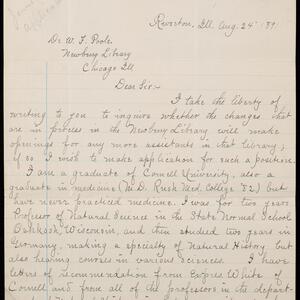 Riverton, Ill. Aug. 24th 1891
Dr. W. F. Poole
Newberry Library
Chicago Ill
Dear Sir:-
I take the liberty of
writing to you to inquire whether the changes that
are in process in the Newberry Library will make
openings for any more assistants in that library;
if so I wish to make application for such a position.
I am a graduate of Cornell University, also a
graduate in medicine (M.D. Rush Med. College '82) but
have never practiced medicine. I was for two years
Professor of Natural Science in the State Normal School
Oshkosh, Wisconsin, and then studied two years in
Germany, making a specialty of Natural History, but
also hearing courses in various sciences. I have
letters of recommendation from Ex-pres. White of
Cornell and from all of the professors in the depart-